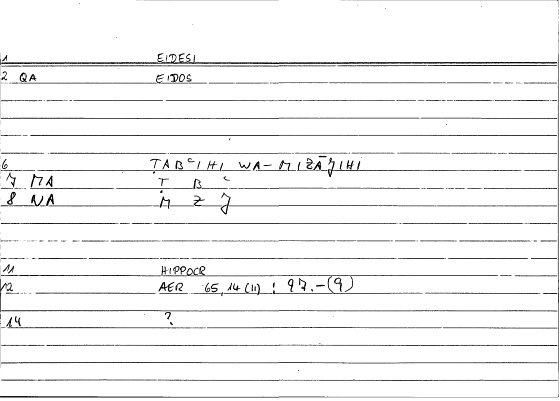 1 EIDESI
2 QA EIDOS
6 ṬABʿIHI WA-MIZĀǦIHI
7 MA Ṭ B ʿ
8 NA M Z Ǧ
11 HIPPOCR
12 AER 65,14 (11) : 97.-(9)
14 ?